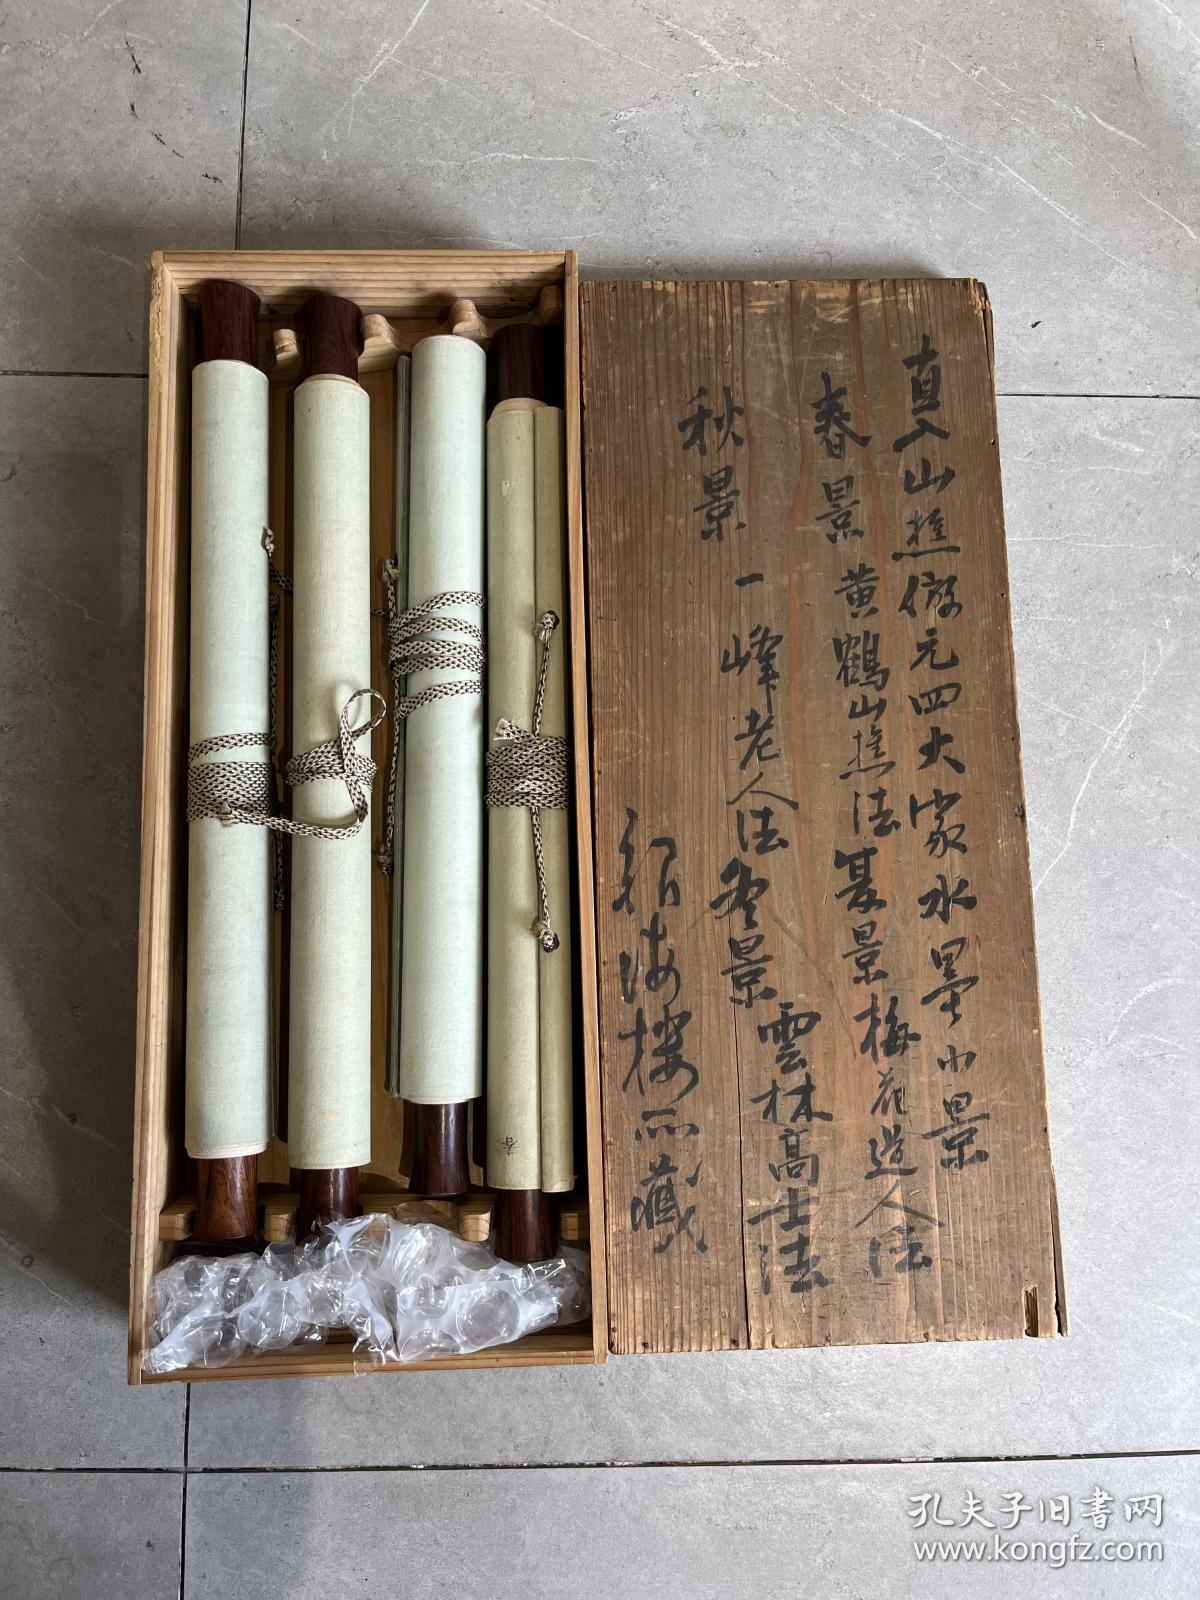 直入山樵倣元四大家水墨小景
春景 黄鶴山樵法 夏景 梅花道人法
秋景 一峰老人法 冬景 雲林高士法
海楼所藏
春
孔夫子旧书网
www.kongfz.com